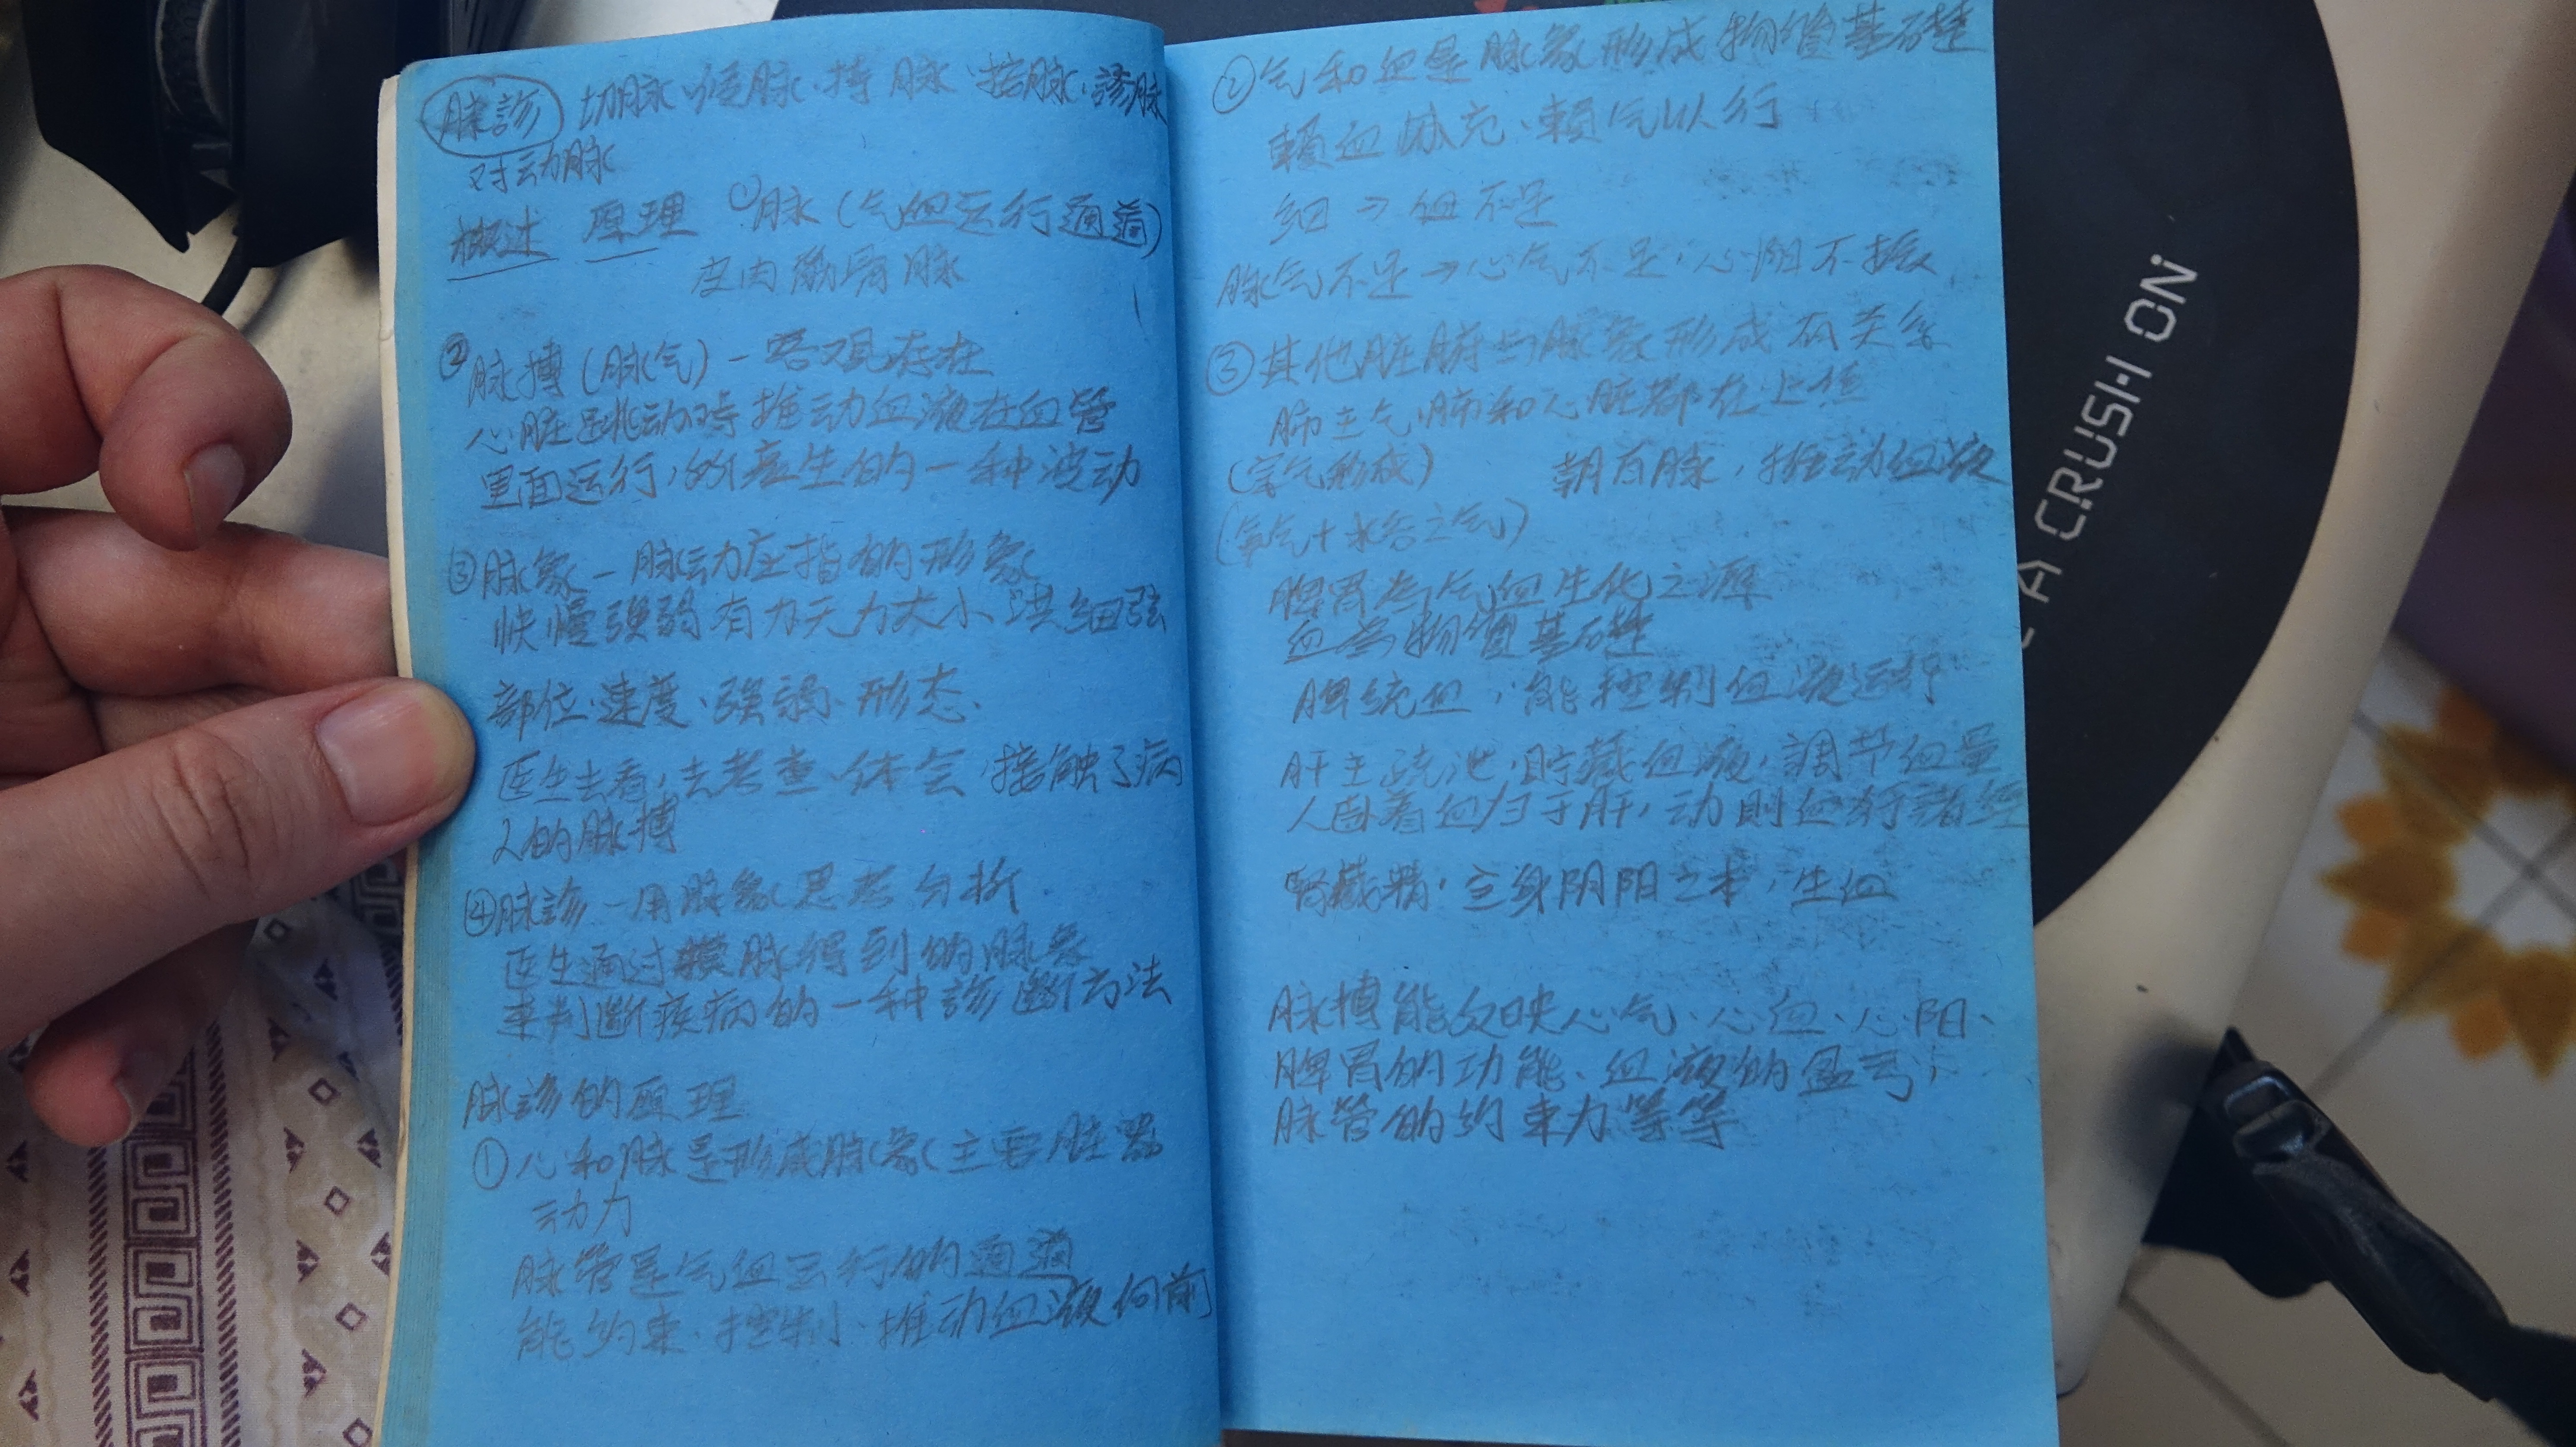 脉診 切脉、候脉、持脉、按脉、診脉
对动脉
概述 原理 ①脉(气血运行通道)
皮肉筋骨脉
②脉搏(脉气)-客观存在
心脏跳动时推动血液在血管
里面运行,所产生的一种波动
③脉象-脉动应指的形象
快慢强弱有力无力大小洪细弦
部位、速度、强弱、形态、
医生去看,去考查、体会,接触了病
人的脉搏
④脉診-用脉象思考分析
医生通过摸脉得到的脉象
来判斷疾病的一种診斷方法
脉診的原理
①心和脉是形成脉象主要脏器
动力
脉管是气血运行的通道
能约束、控制、推动血液向前
②气和血是脉象形成物質基础
賴血以充、賴气以行
细→血不足
脉气不足→心气不足,心阳不振
③其他脏腑与脉象形成有关系
肺主气,肺和心脏都在上焦
(宗气形成) 朝百脉,推动血液
(氧气+水谷之气)
脾胃为气血生化之源
血为物質基础
脾统血,能控制血液运行
肝主疏泄,貯藏血液,調节血量
人卧着血归于肝,动則血行諸经
腎藏精,全身阴阳之本,生血
脉搏能反映心气、心血、心阳、
脾胃的功能、血液的盈亏,
脉管的约束力等等
LA CRUSH ON